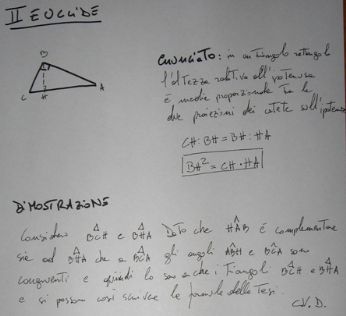 II EUCLIDE
B
C H A
ENUNCIATO: in un triangolo rettangolo
l'altezza relativa all'ipotenusa
è medio proporzionale tra le
due proiezioni dei cateti sull'ipotenusa
CH:BH=BH:HA
BH²=CH·HA
DIMOSTRAZIONE
Considero BĈH e BĤA Dato che HÂB è complementare
sia ad BĤA che a BĈA gli angoli ABH e BĈA sono
congruenti e quindi lo sono anche i triangoli BCH e BHA
e si possono così scrivere le formule della Tesi.
C.V.D.